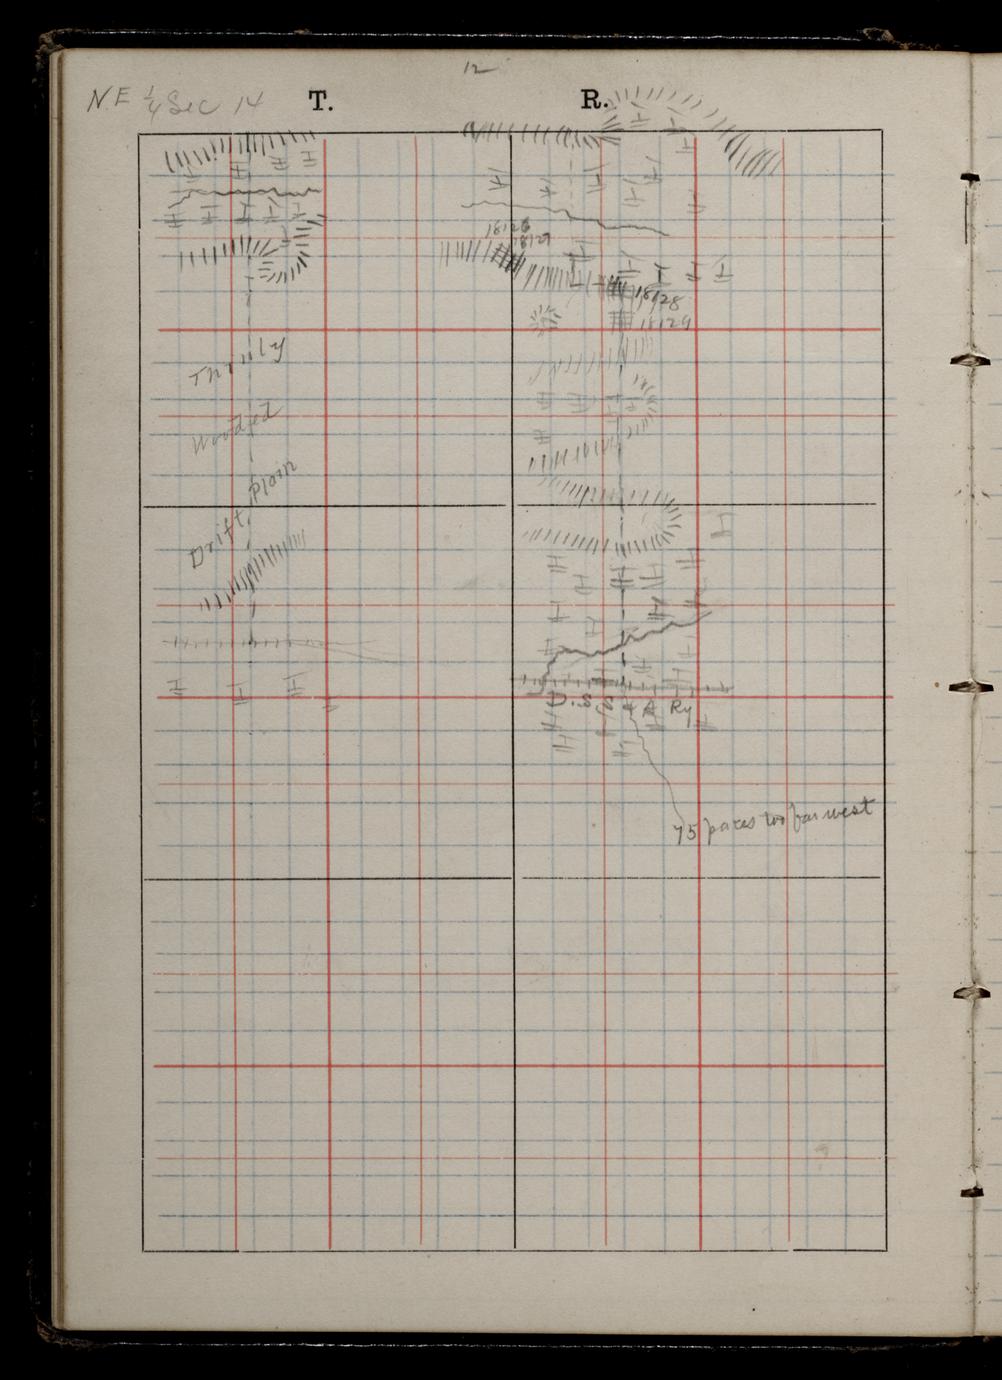 12
NE 1/4 Sec 14 T. R.
18128
18129
18128
18129
Thinly
Wooded
Drift Plain
D. S. S & A Ry
75 paces too far west